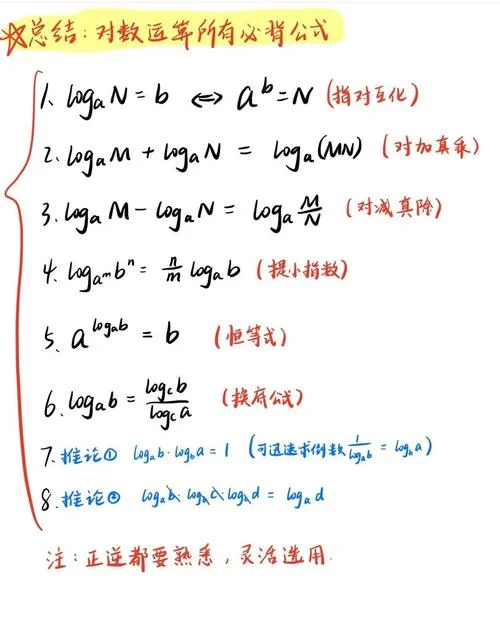 ☆总结:对数运算所有必背公式
1、logₐN = b ⇔ aᵇ = N (指对互化)
2、logₐM + logₐN = logₐ(MN) (对加真乘)
3、logₐM − logₐN = logₐ M/N (对减真除)
4、log_{a^m} b^n = n/m logₐb (提小指数)
5、a^{logₐb} = b (恒等式)
6、logₐb = log_c b / log_c a (换底公式)
7、推论① logₐb·log_b a = 1 (可迅速求倒数 1/logₐb = log_b a)
8、推论② logₐb·log_b c·log_c d = logₐd
注:正逆都要熟悉,灵活选用.